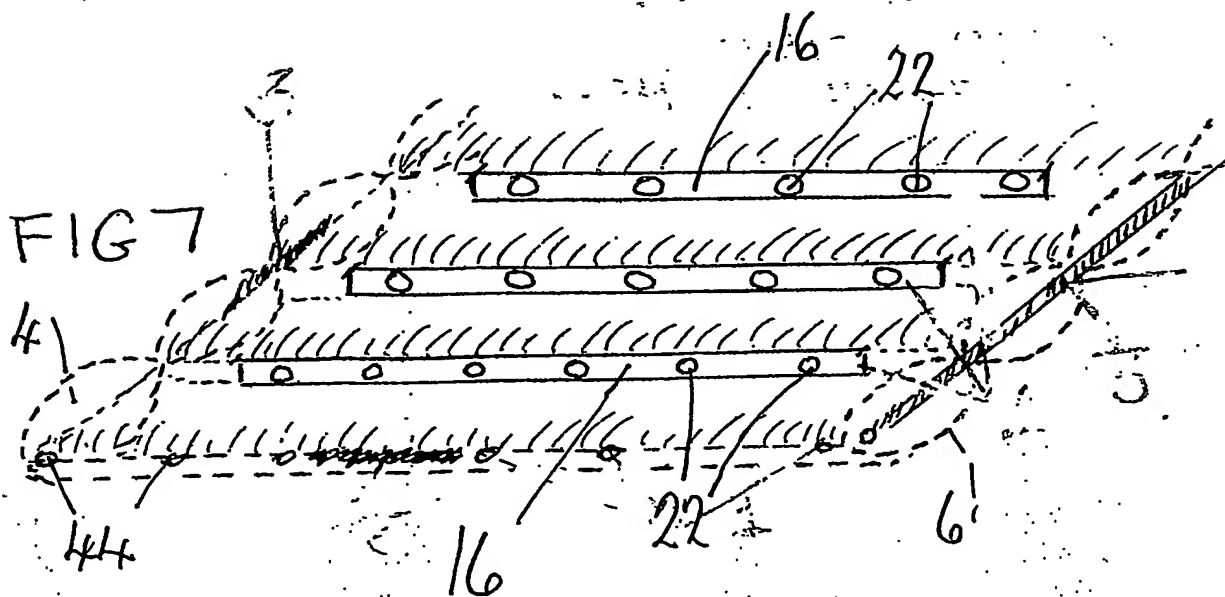 16
22
FIG 7
4
44
16
22
6'